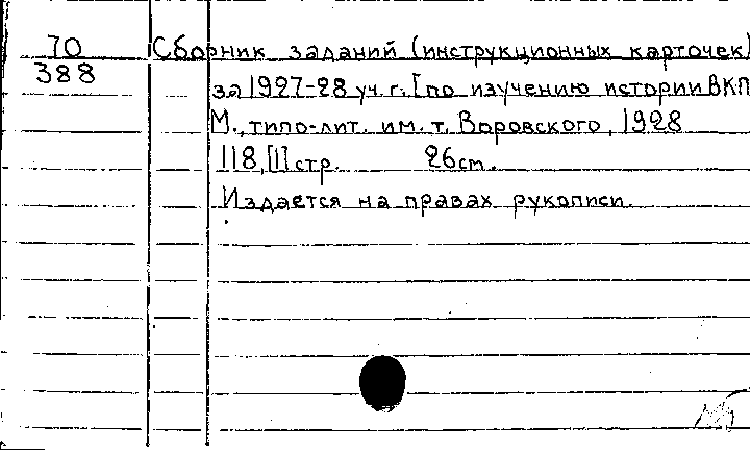 70
388
Сборник заданий (инструкционных карточек)
за 1927-28 уч. г. [по изучению истории ВКП
М., типо-лит. им. т. Воровского, 1928
118, [1] стр. 26 см.
Издается на правах рукописи.